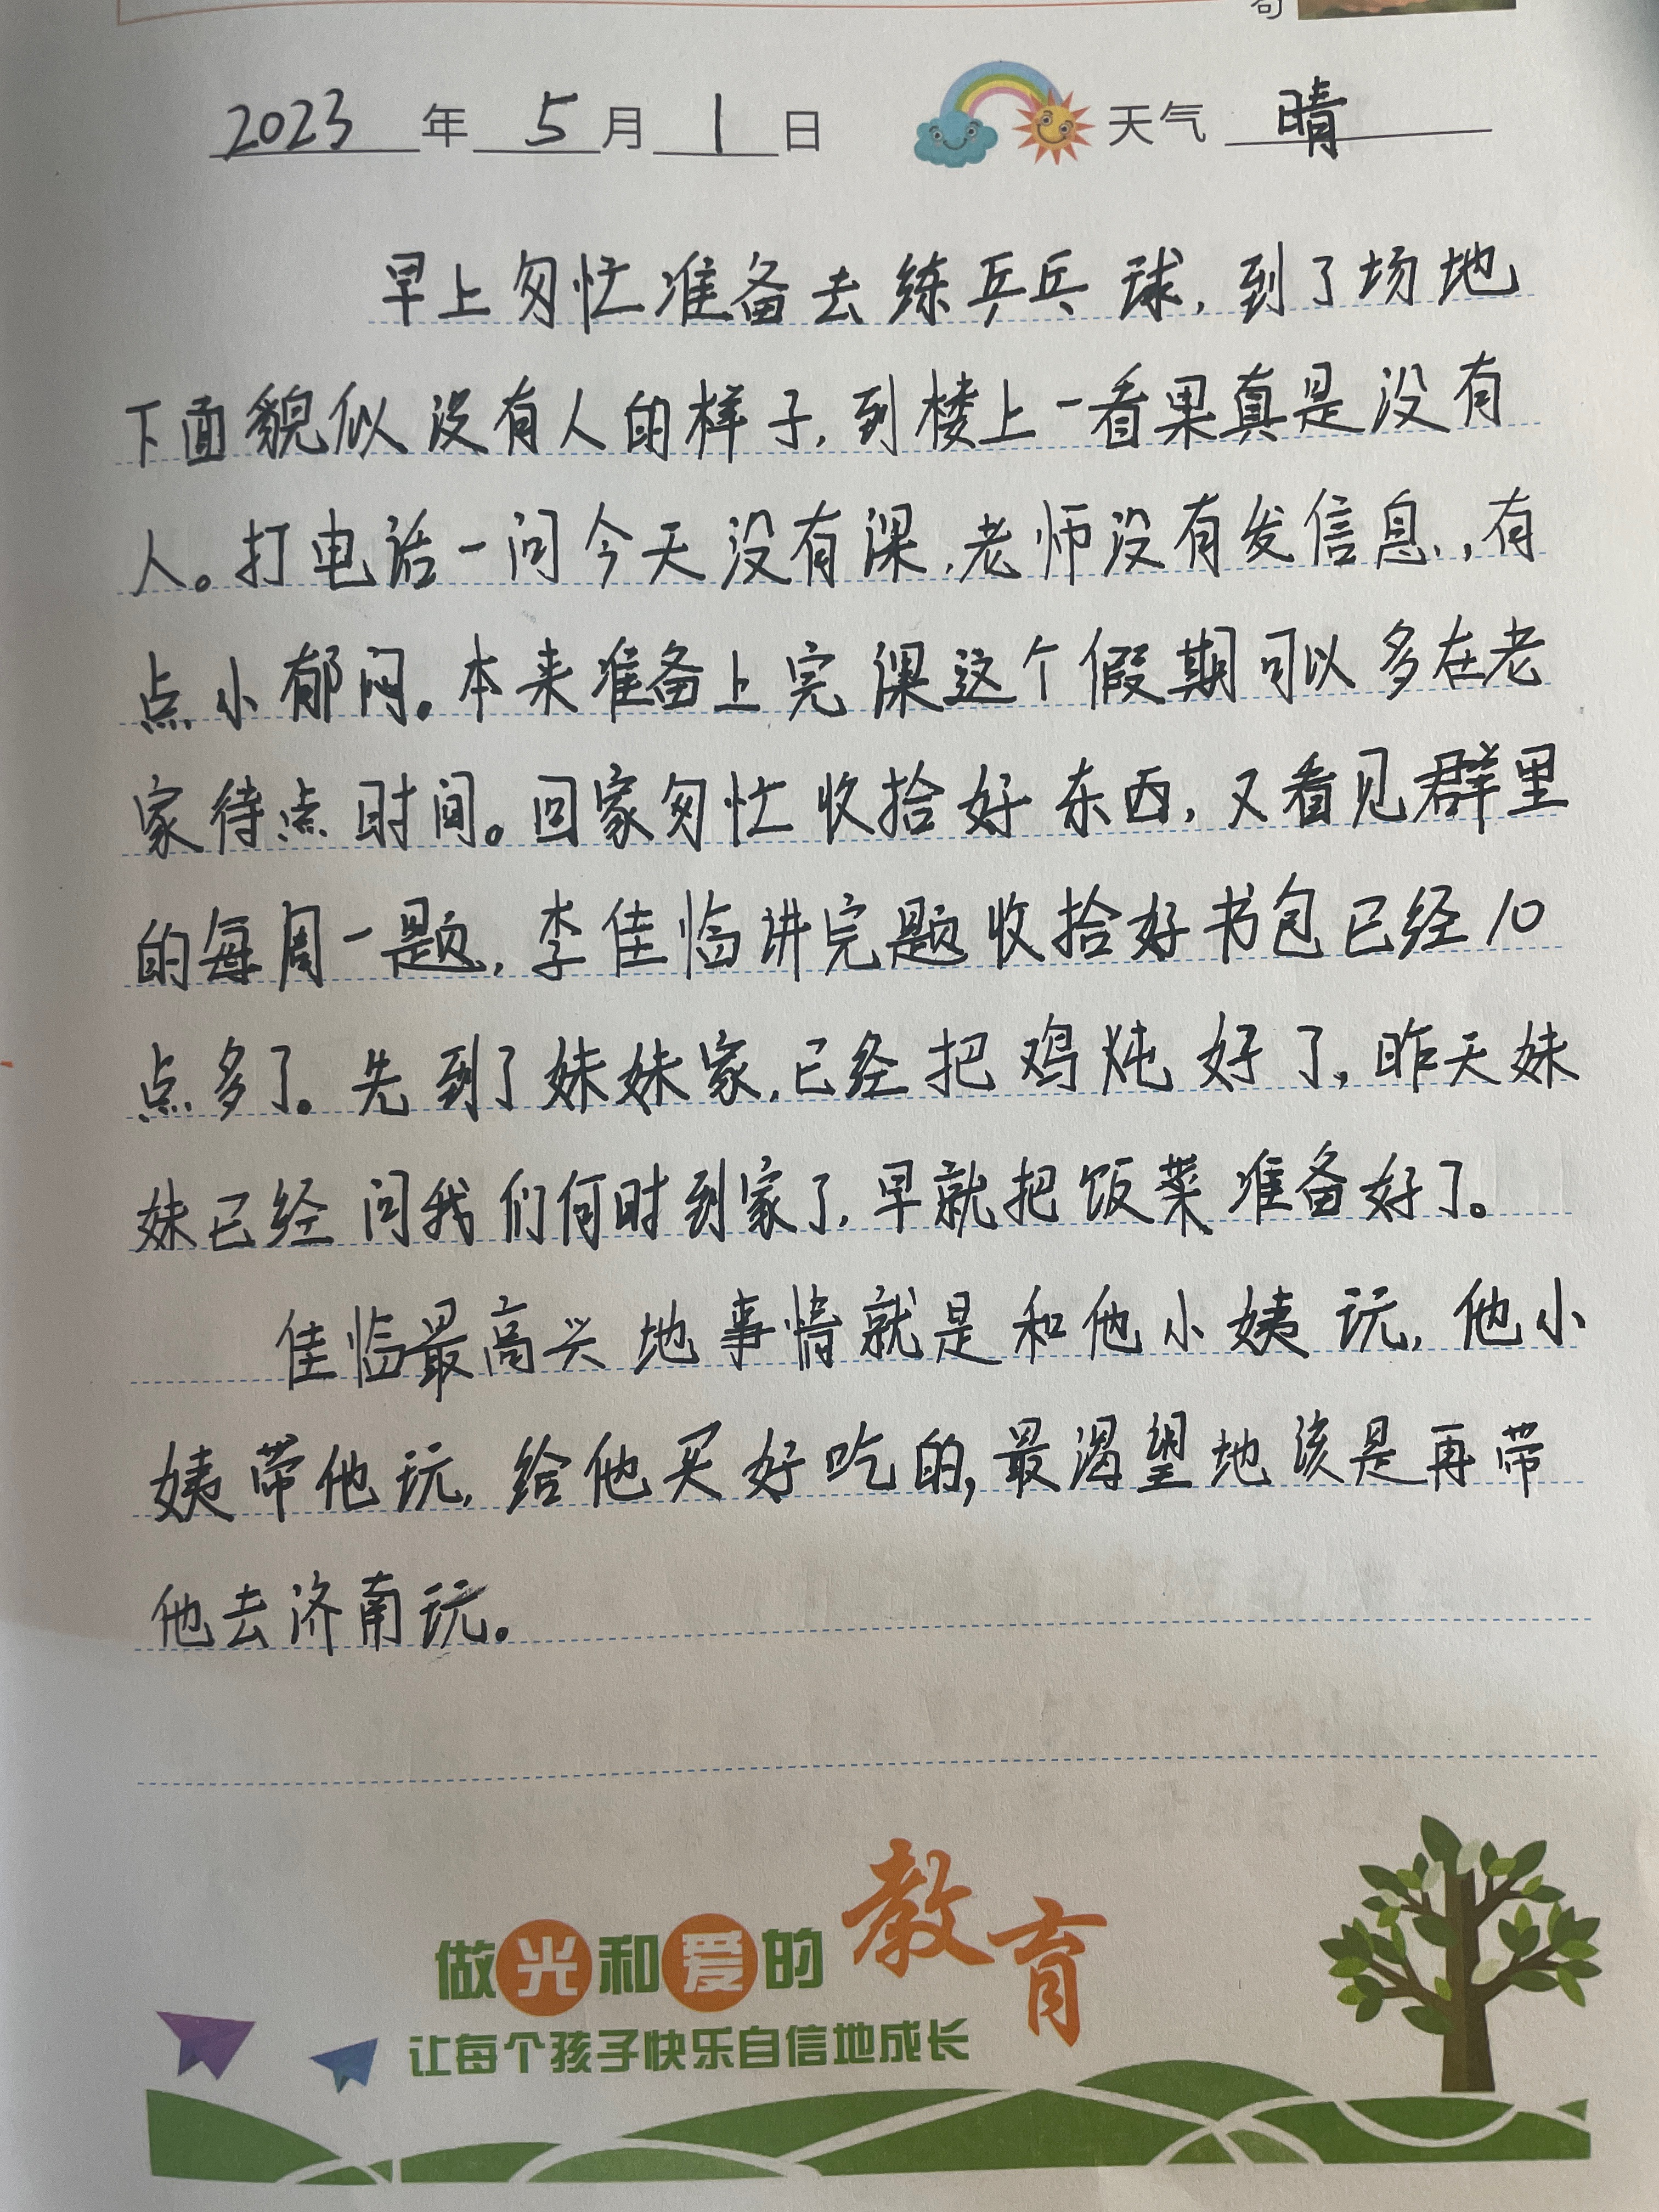 2023年5月1日 天气 晴
早上匆忙准备去练乒乓球,到了场地
下面貌似没有人的样子,到楼上一看果真是没有
人。打电话一问今天没有课,老师没有发信息,,有
点小郁闷。本来准备上完课这个假期可以多在老
家待点时间。回家匆忙收拾好东西,又看见群里
的每周一题,李佳临讲完题收拾好书包已经10
点多了。先到了妹妹家,已经把鸡炖好了,昨天妹
妹已经问我们何时到家了,早就把饭菜准备好了。
佳临最高兴地事情就是和他小姨玩,他小
姨带他玩,给他买好吃的,最渴望地该是再带
他去济南玩。
做光和爱的教育
让每个孩子快乐自信地成长